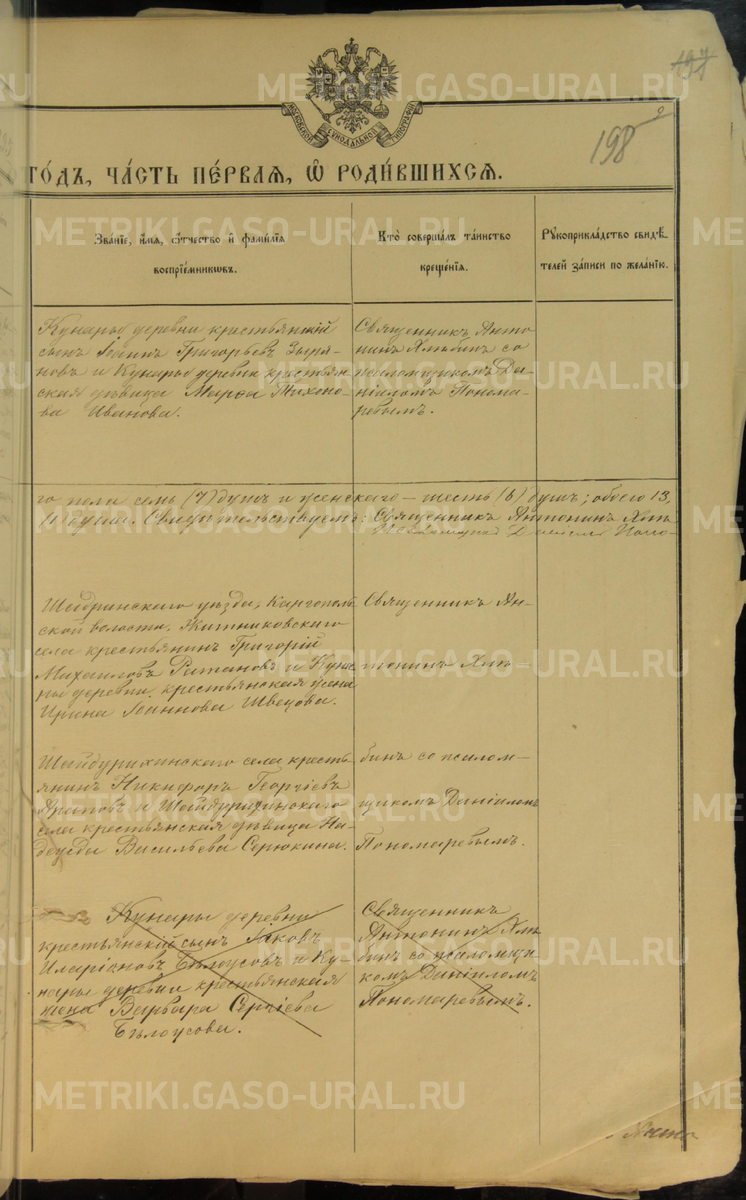 197
9
198
МОСКОВСКОЙ СѴНОДАЛЬНОЙ ТИПОГРАФІИ
ГО́ДЪ, ЧА́СТЬ ПЕ́РВАЯ, Ѡ РОДИ́ВШИХСЯ.
Зва́нїе, и́мя, ѻ́тчество и фами́лїя
воспрїе́мникѡвъ.
Кто̀ соверша́лъ та́инство
креще́нїя.
Рꙋкоприкла́дство свидѣ́-
телей за́писи по жела́нїю.
Кунары деревни крестьянскій
сынъ Іоаннъ Григорьевъ Зыря-
новъ и Кунары деревни крестьян
ская дѣвица Марѳа Тихоно-
ва Иванова.
Священникъ Анто-
нинъ Хлыбинъ со
псаломщикомъ Да-
ніиломъ Понома-
ревымъ.
го пола семь (7) душъ и женскаго — шесть (6) душъ; обоего 13
душъ. Свидѣтельствуемъ: Священникъ Антонинъ Хлы
Псаломщикъ Даніилъ Поно-
Шадринскаго уѣзда, Каргаполь
ской волости, Житниковскаго
села крестьянинъ Григорій
Михаиловъ и Куна
ры деревни, крестьянская жена
Ирина Іоаннова Швецова.
Священникъ Ан-
тонинъ Хлы
Шайдурихинскаго села кресть-
янинъ Никифоръ Георгіевъ
Араповъ и Шайдурихинскаго
села крестьянская дѣвица На-
дежда Васильева Серюкина.
бинъ со псалом-
щикомъ Даніиломъ
Пономаревымъ.
Кунары деревни
крестьянскій сынъ Іаковъ
Иларіоновъ Бѣлоусовъ и Ку-
нары деревни крестьянская
жена Варвара Сергіева
Бѣлоусова.
Священникъ
Антонинъ Хлы
бинъ со псаломщи-
комъ Даніиломъ
Пономаревымъ.
METRIKI.GASO-URAL.RU